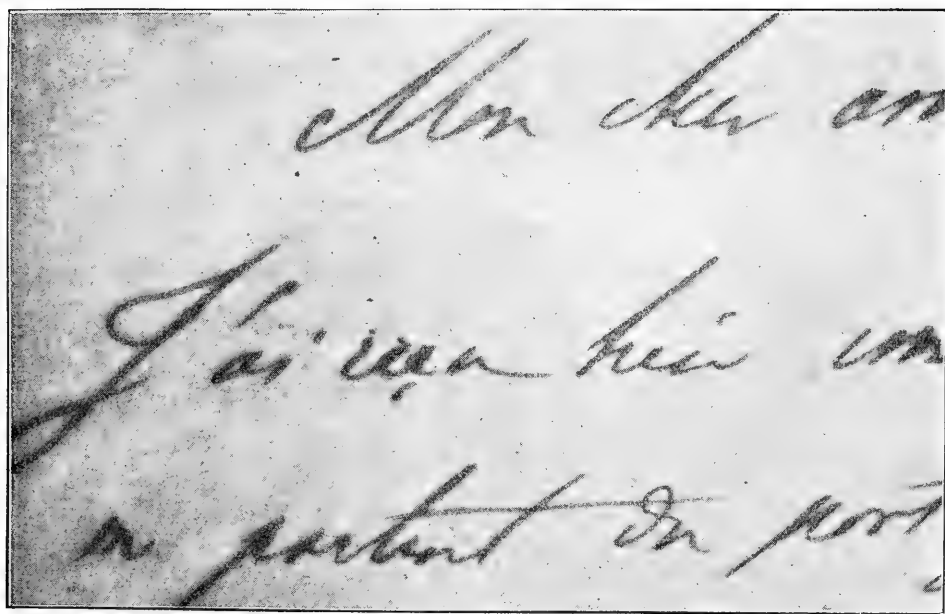 Mon cher am
J'ai reçu hier vo
n partant du port